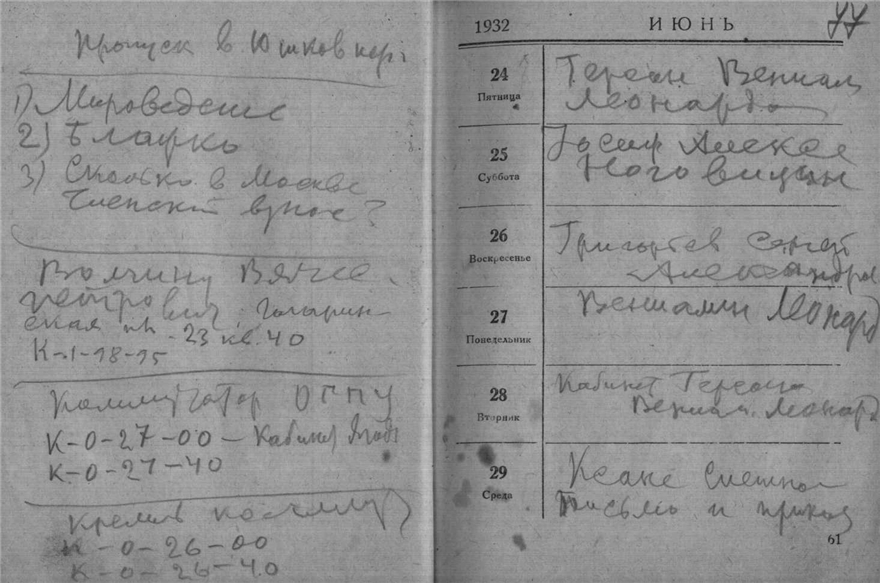 Пропуск в Юшков пер.
1) Мироведение
2) Бланки
3) Сколько в Москве
Членский взнос?
Волчину Вяче-
петрович. Гагарин-
ская пл. 23 кв. 40
К-1-18-15
Коммутатор ОГПУ
К-0-27-00 - Кабинет Ягоды
К-0-27-40
Кремль коммут
К-0-26-00
К-0-26-40
1932 ИЮНЬ 77
24 Пятница
Герсон Вениам
Леонардо
25 Суббота
Иосиф Алексе
Ноговицын
26 Воскресенье
Григорьев Сергей
Александров
27 Понедельник
Вениамин Леонард
28 Вторник
Кабинет Герсона
Вениам. Леонард
29 Среда
письмо и приказ
61